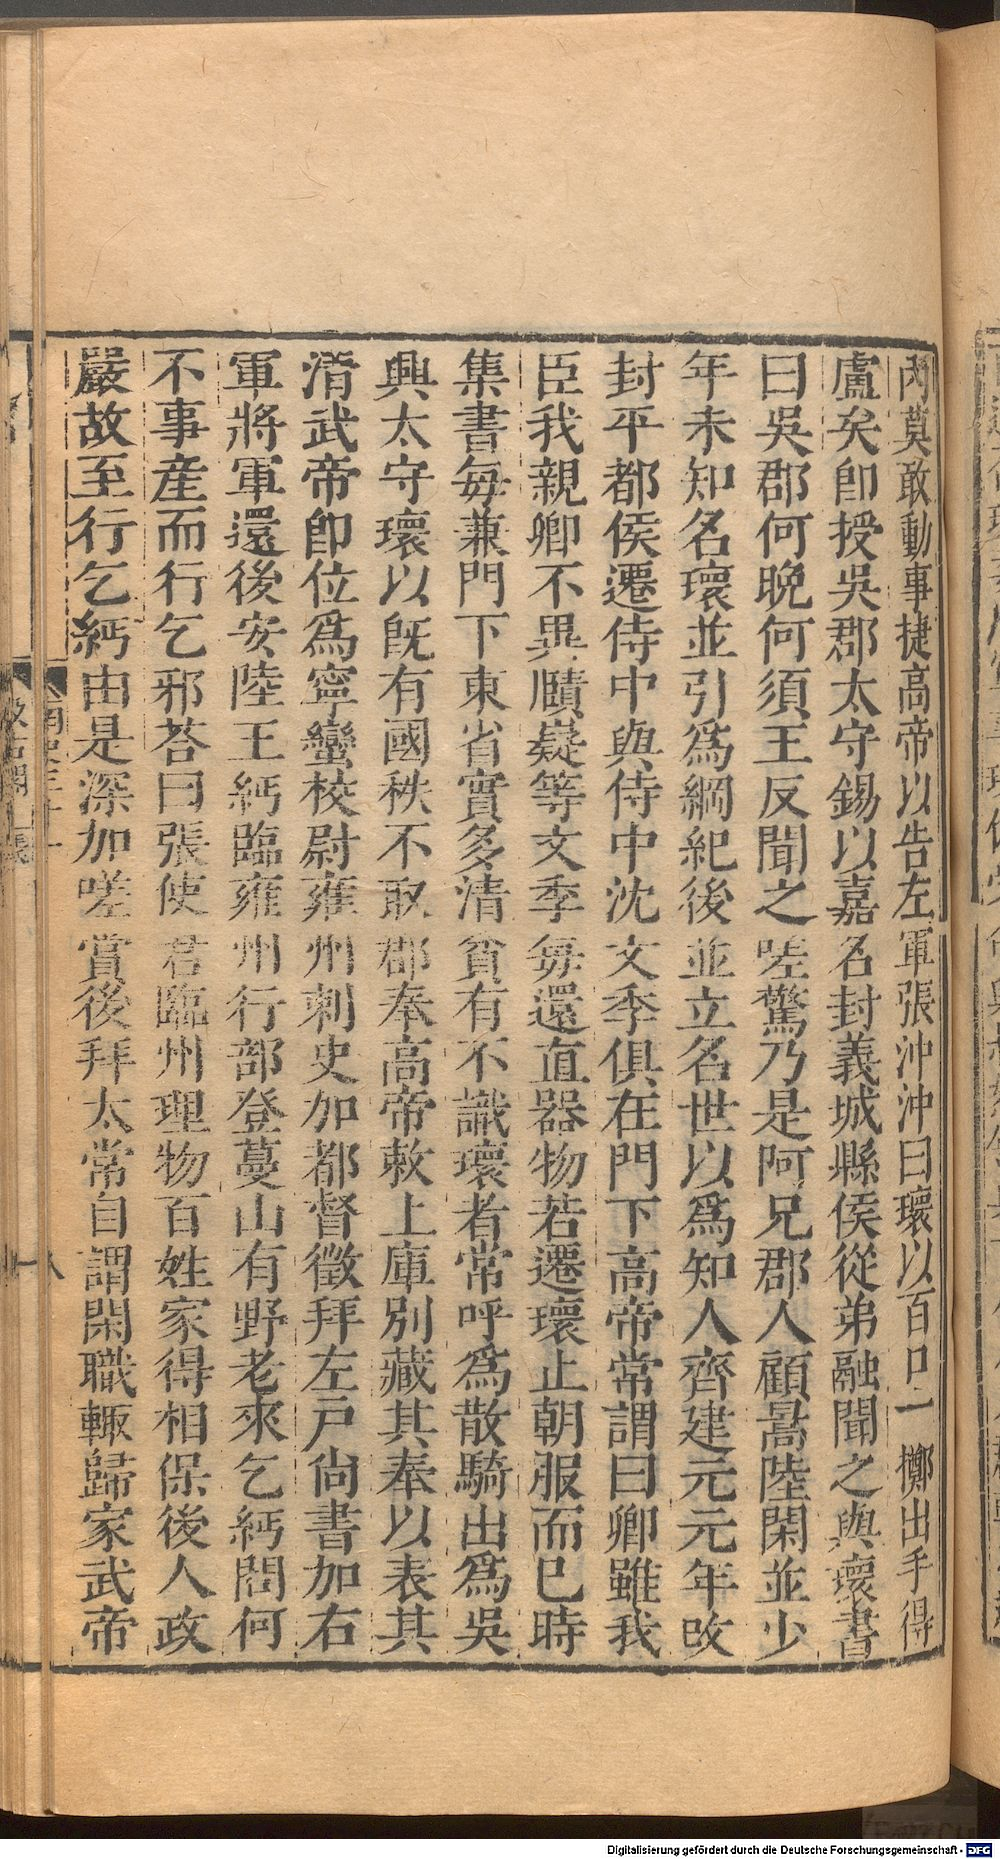 內莫敢動事捷高帝以告左軍張沖沖曰瓌以百口一擲出手得
盧矣卽授吳郡太守錫以嘉名封義城縣侯從弟融聞之與瓌書
曰吳郡何晩何須王反聞之嗟驚乃是阿兄郡人顧暠陸閑並少
年未知名瓌並引爲綱紀後並立名世以爲知人齊建元元年改
封平都侯遷侍中與侍中沈文季俱在門下高帝常謂曰卿雖我
臣我親卿不異賾嶷等文季每還直器物若遷瓌止朝服而已時
集書每兼門下東省實多清貧有不識瓌者常呼爲散騎出爲吳
興太守瓌以旣有國秩不取郡奉高帝敕上庫別藏其奉以表其
清武帝卽位爲寧蠻校尉雍州刺史加都督徵拜左戸尙書加右
軍將軍還後安陸王緬臨雍州行部登蔓山有野老來乞緬問何
不事産而行乞邪荅曰張使君臨州理物百姓家得相保後人政
嚴故至行乞緬由是深加嗟賞後拜太常自謂閑職輒歸家武帝
南史三十一
八
汲古閣
Digitalisierung gefördert durch die Deutsche Forschungsgemeinschaft - DFG